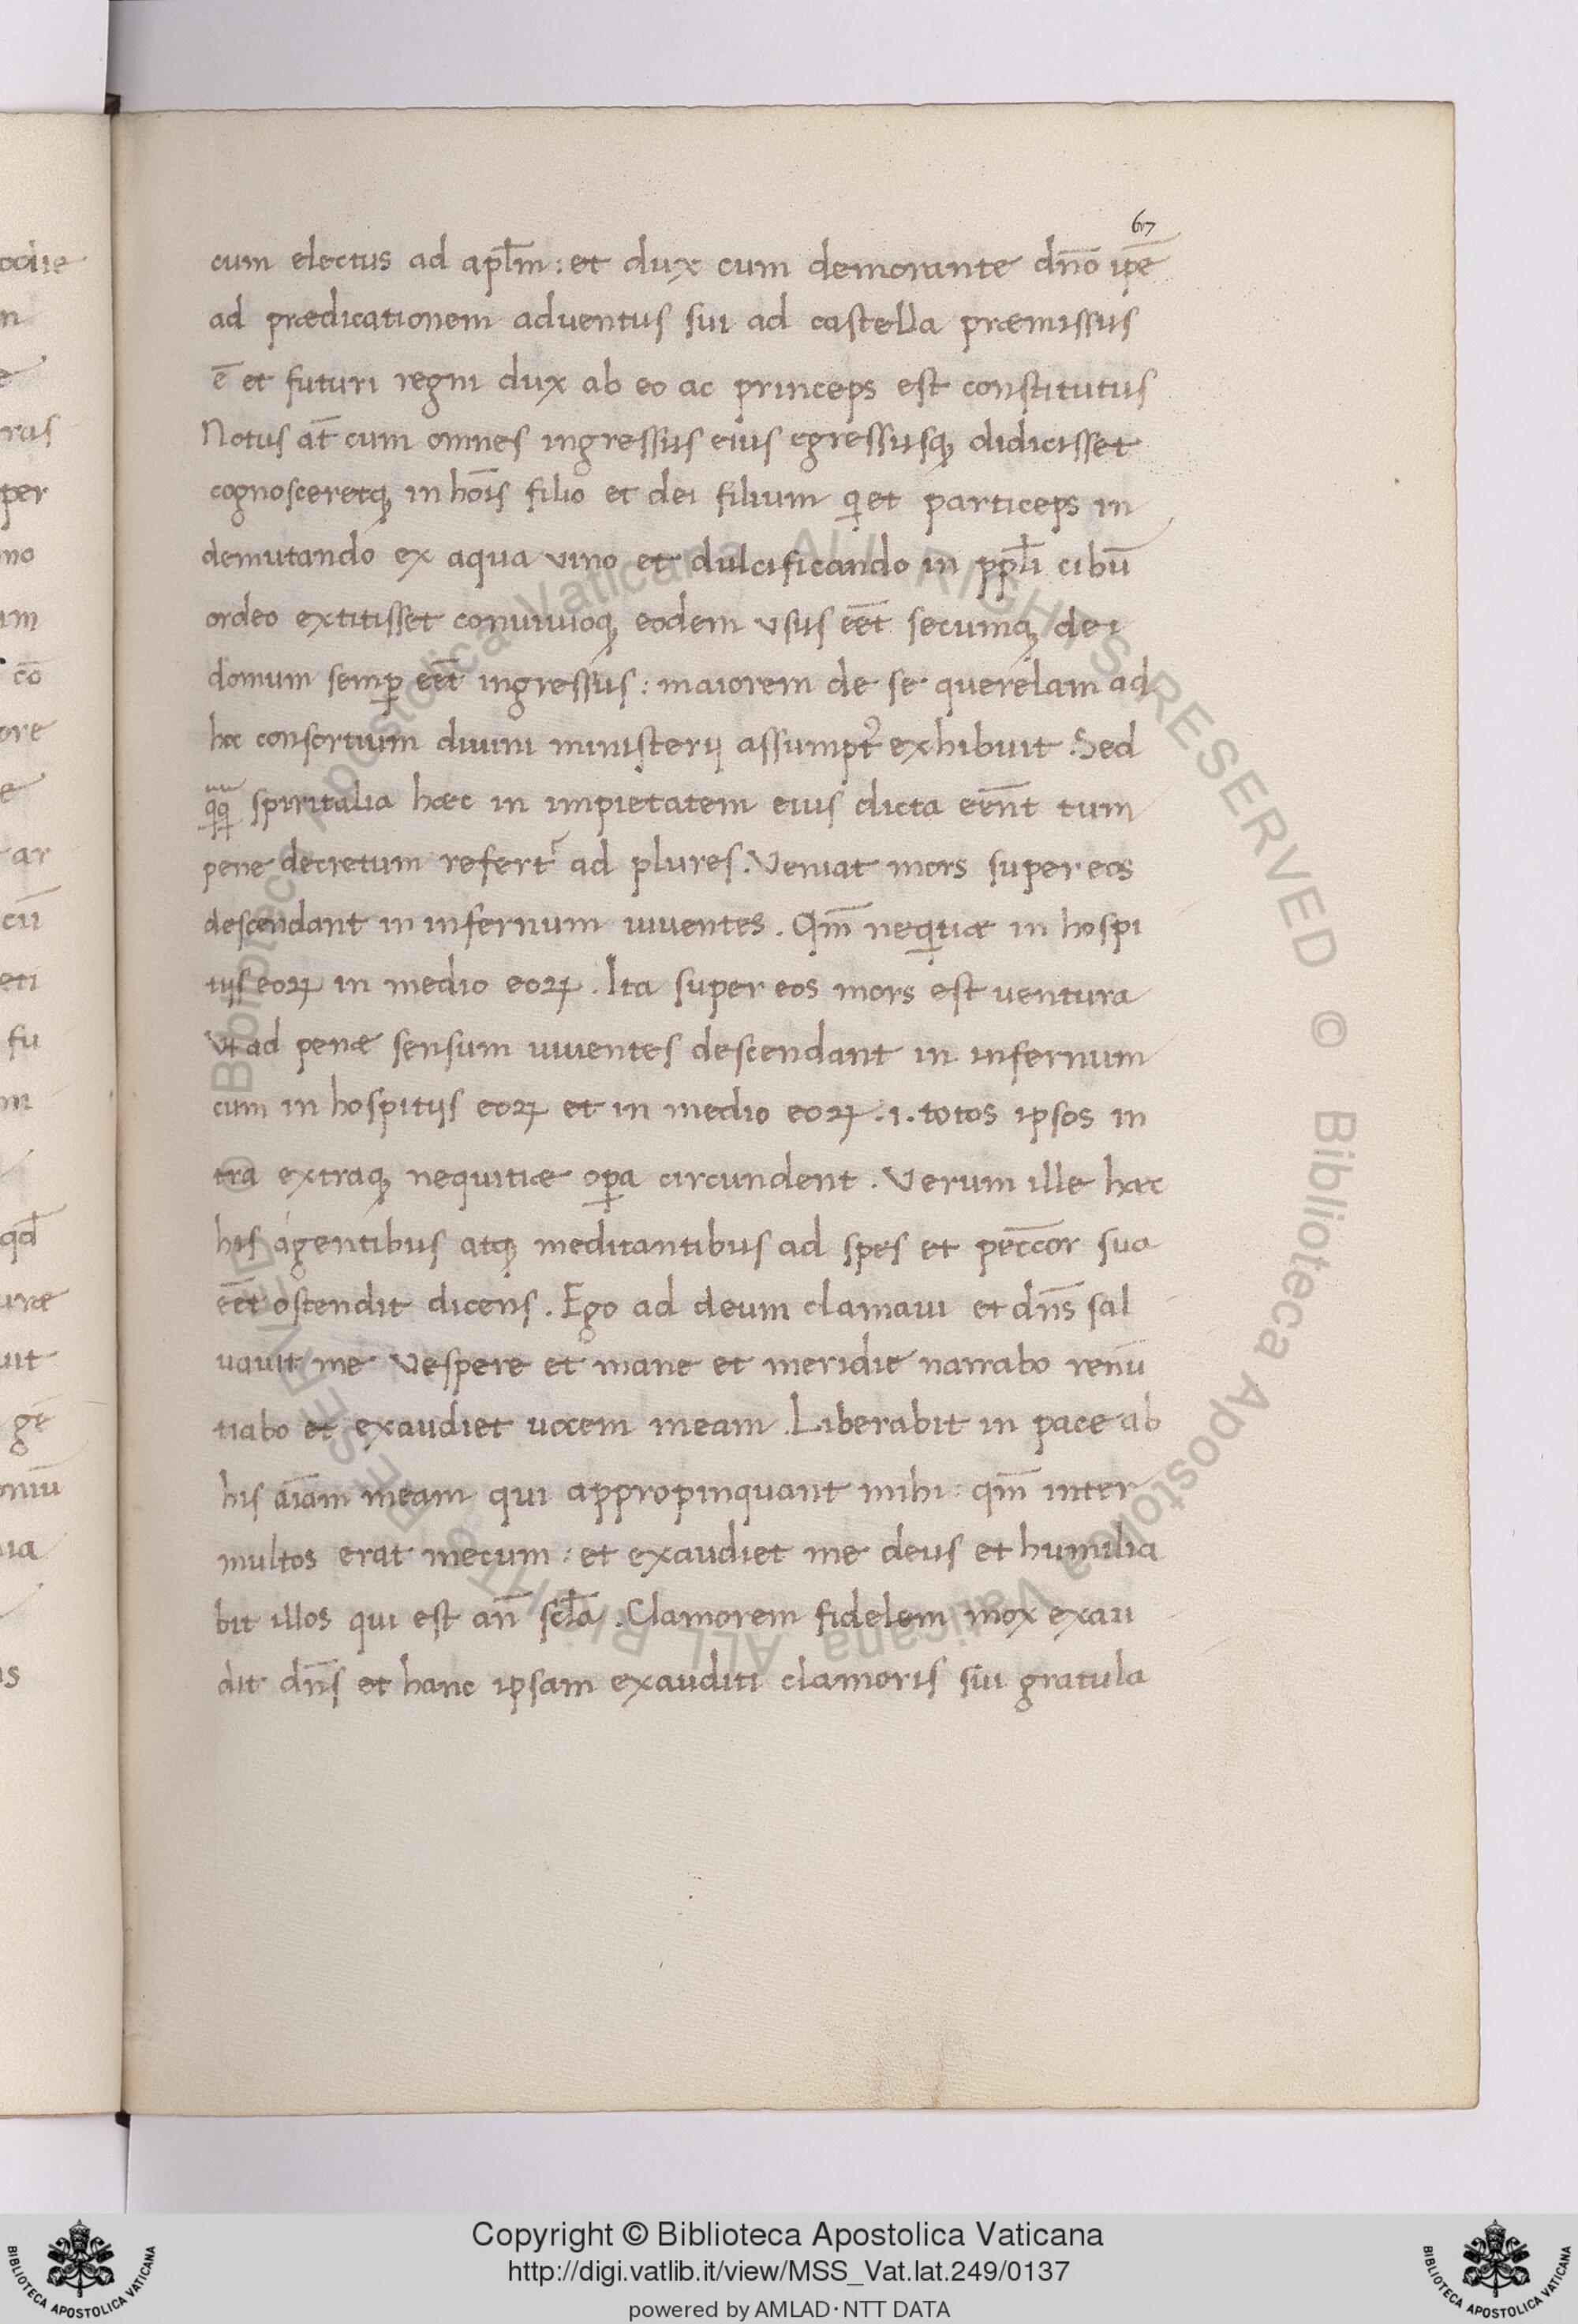 67
cum electus ad apl̄m : et dux cum demorante dño ip̄e
ad prædicationem aduentus sui ad castella præmissus
ē et futuri regni dux ab eo ac princeps est constitutus
Notus at̄ cum omnes ingressus eius egressusq; didicisset
cognosceretq; in hōis filio et dei filium qi et particeps in
demutando ex aqua vino et dulcificando in ppl̄i cibū
ordeo extitisset conuiuioq; eodem vsus eēt secumq; dei
domum semꝑ eēt ingressus : maiorem de se querelam ad
hoc consortium diuini ministerij assumpt᷑ exhibuit . Sed
spiritalia hæc in impietatem eius dicta eēnt tum
pene decretum refert᷑ ad plures . Veniat mors super eos
descendant in infernum uiuentes . Qm̄ neqitiæ in hospi
tijs eoꝝ in medio eoꝝ . Ita super eos mors est ventura
Vt ad penæ sensum uiuentes descendant in infernum
cum in hospitijs eoꝝ et in medio eoꝝ .i. totos ipsos in
tra extraq; nequitiæ oꝑa circundent . Verum ille hæc
his agentibus atq; meditantibus ad spes et
eēt ostendit dicens . Ego ad deum clamaui et dñs sal
uauit me Vespere et mane et meridie narrabo renū
tiabo et exaudiet uocem meam . Liberabit in pace ab
his aīam meam qui appropinquant mihi : qm̄ inter
multos erat mecum : et exaudiet me deus et humilia
bit illos qui est añ scl̄a . Clamorem fidelem mox exau
dit dñs et hanc ipsam exauditi clamoris sui gratula
© Biblioteca Apostolica Vaticana ALL RIGHTS RESERVED © Biblioteca Apostolica Vaticana ALL RIGHTS RESERVED
Copyright © Biblioteca Apostolica Vaticana
http://digi.vatlib.it/view/MSS_Vat.lat.249/0137
powered by AMLAD·NTT DATA
BIBLIOTECA APOSTOLICA VATICANA
BIBLIOTECA APOSTOLICA VATICANA